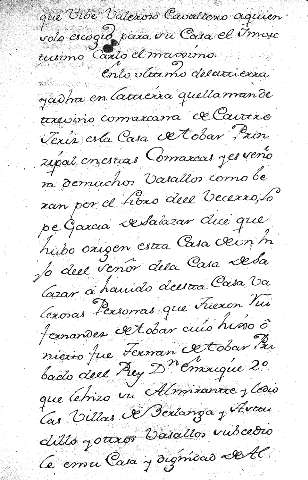 que Vibe Valeroso Cavallero aquien
solo escogio para su Casa el Invic
tissimo Carlo el maximo.
Enlo ultimo desta tierra
yadha en la tierra quellaman de
treviño comarcana de Castro
Xeriz esla Casa de tobar Prin
zipal enestas Comarcas y es señora
m demuchos Vasallos como be
ran por el libro deel Vecerro, lo
pe Garcia de Salazar dice que
hubo origen estta Casa de un hi
jo deel Señor dela Casa de Sa
lazar á havido destta Casa Va
lerosas Personas que fueron Rui
fernandez de tobar cuio hijo ó
nieto fue Fernan de tobar Pri
bado deel Rey Dn. Enrique 2º.
que le hizo su Almirante y ledio
las Villas de Berlanga y Astu
dillo y otros Vasallos subcedio
le en su Casa y dignidad de Al